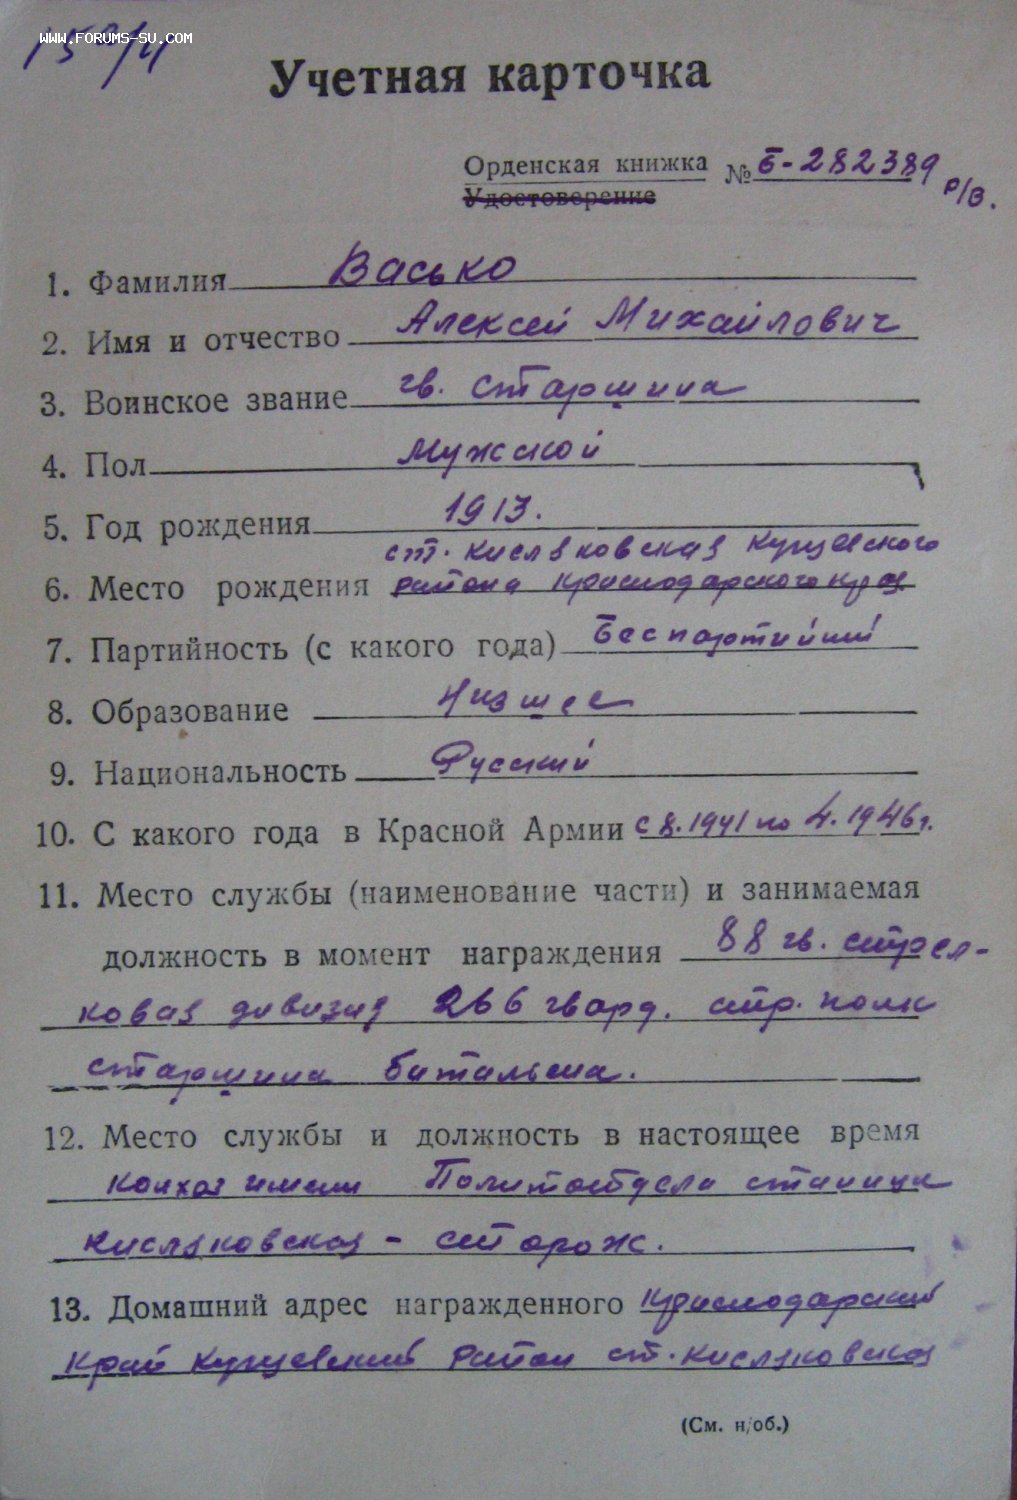 WWW.FORUMS-SU.COM
Учетная карточка
Орденская книжка № Б-282389
Удостоверение Р/В.
1. Фамилия Васько
2. Имя и отчество Алексей Михайлович
3. Воинское звание гв. старшина
4. Пол Мужской
5. Год рождения 1913.
ст. Кисляковская Кущевского
6. Место рождения района Краснодарского края
7. Партийность (с какого года) Беспартийный
8. Образование Низшее
9. Национальность Русский
10. С какого года в Красной Армии с 8.1941 по 4.1946г.
11. Место службы (наименование части) и занимаемая
должность в момент награждения 88 гв. стрел-
ковая дивизия 266 гвард. стр. полк
старшина батальона.
12. Место службы и должность в настоящее время
колхоз имени Политотдела станица
Кисляковская - сторож.
13. Домашний адрес награжденного Краснодарский
край Кущевский район ст. Кисляковская
(См. н/об.)